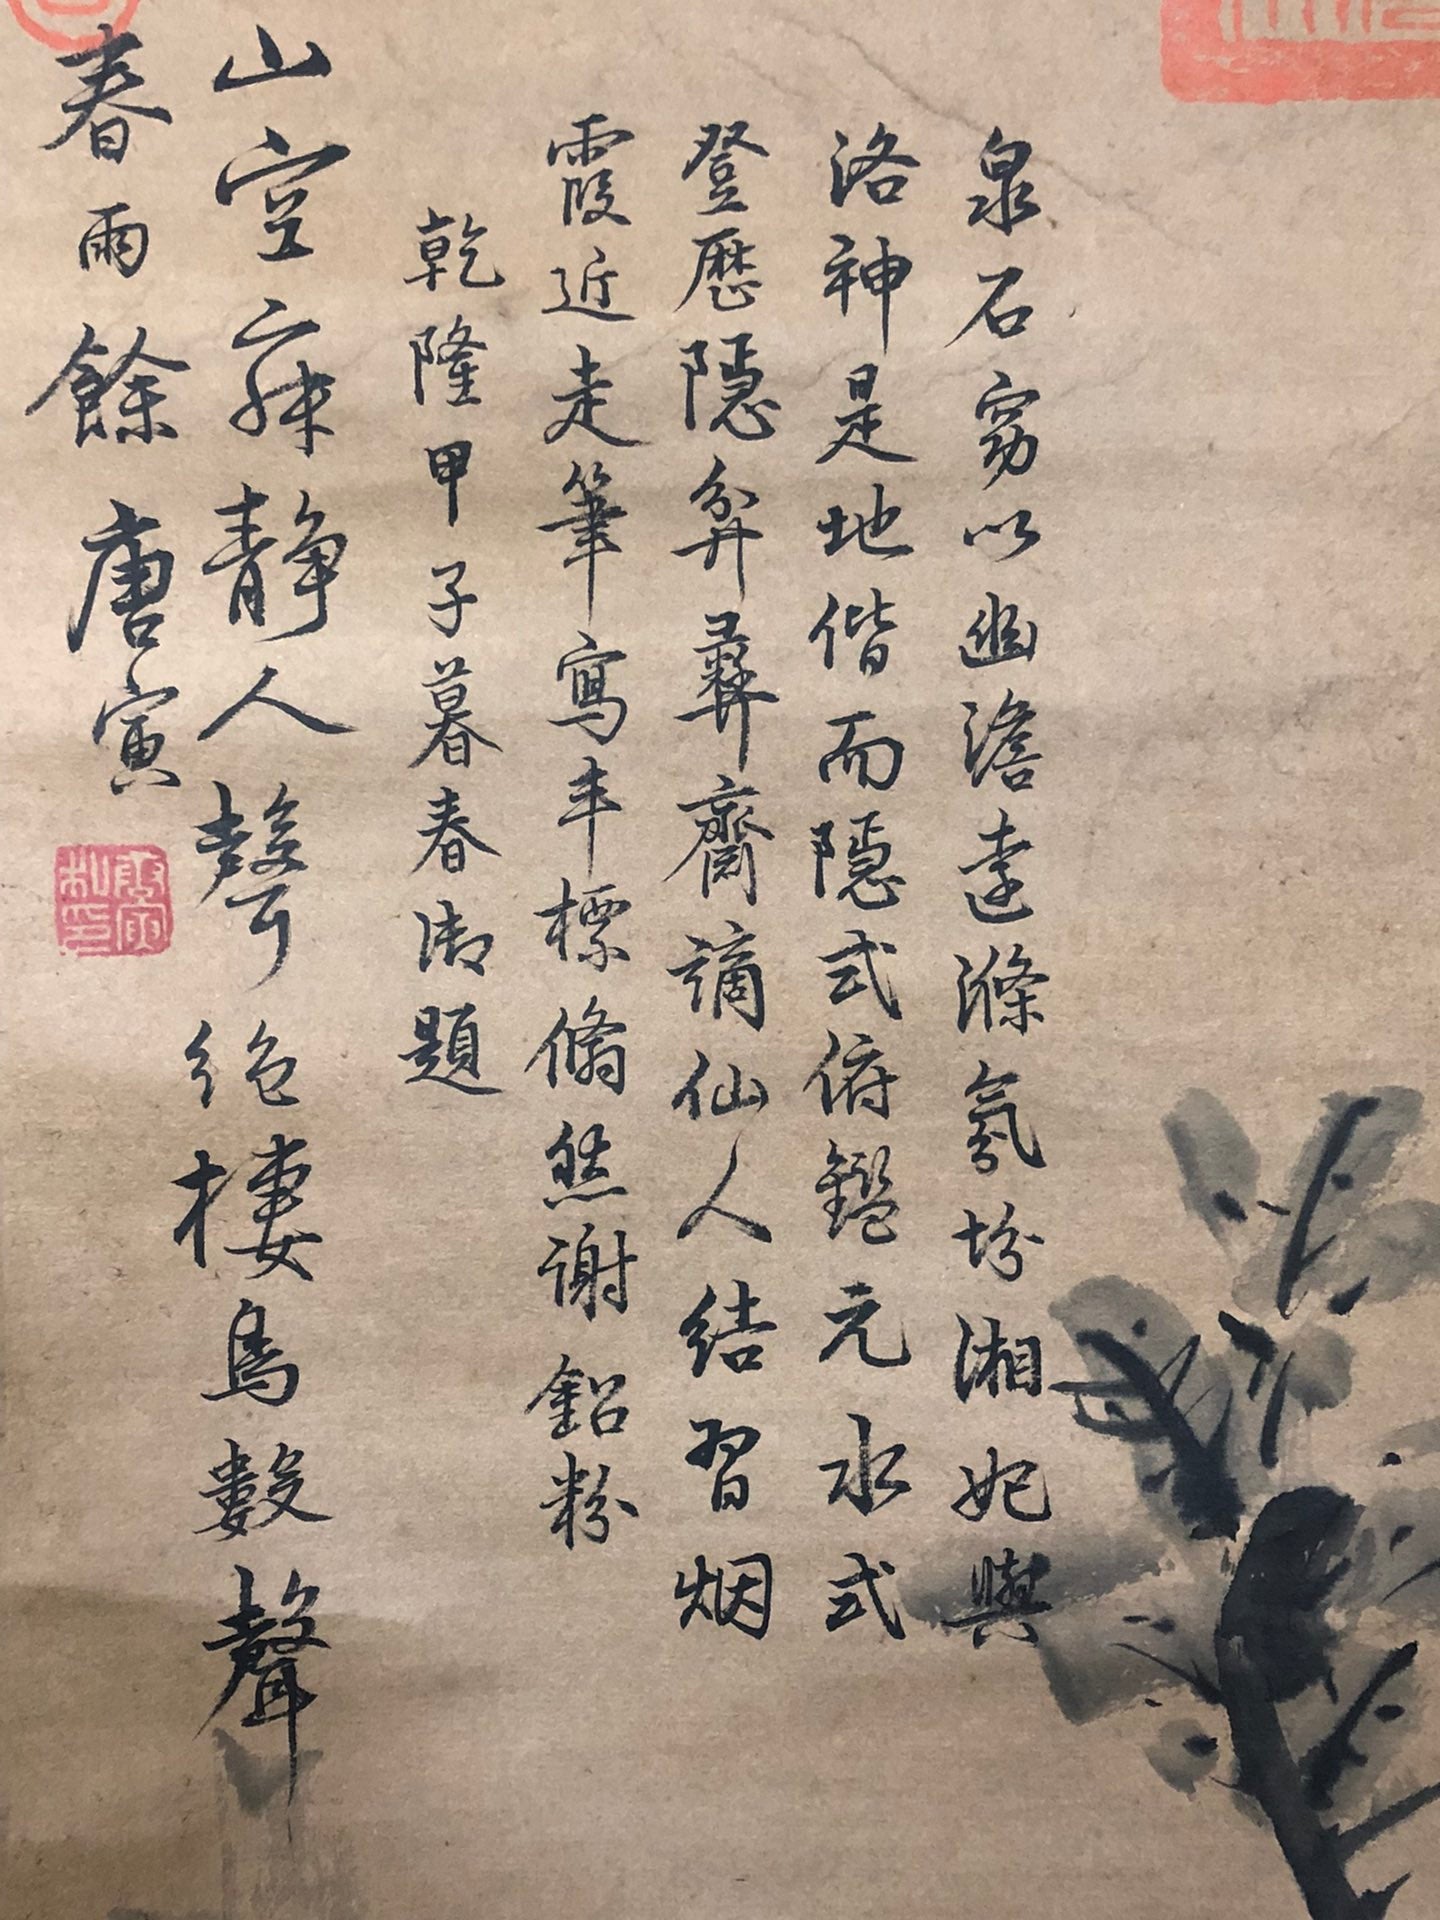 泉石窈以幽澹遠滌氛坋湘妃與
洛神是地偕而隱式俯鑑元水式
登歷隱弅彞齋謫仙人結習烟
霞近走筆寫丰標翛然謝鉛粉
乾隆甲子暮春御題
山空寂靜人聲絕棲鳥數聲
春雨餘唐寅